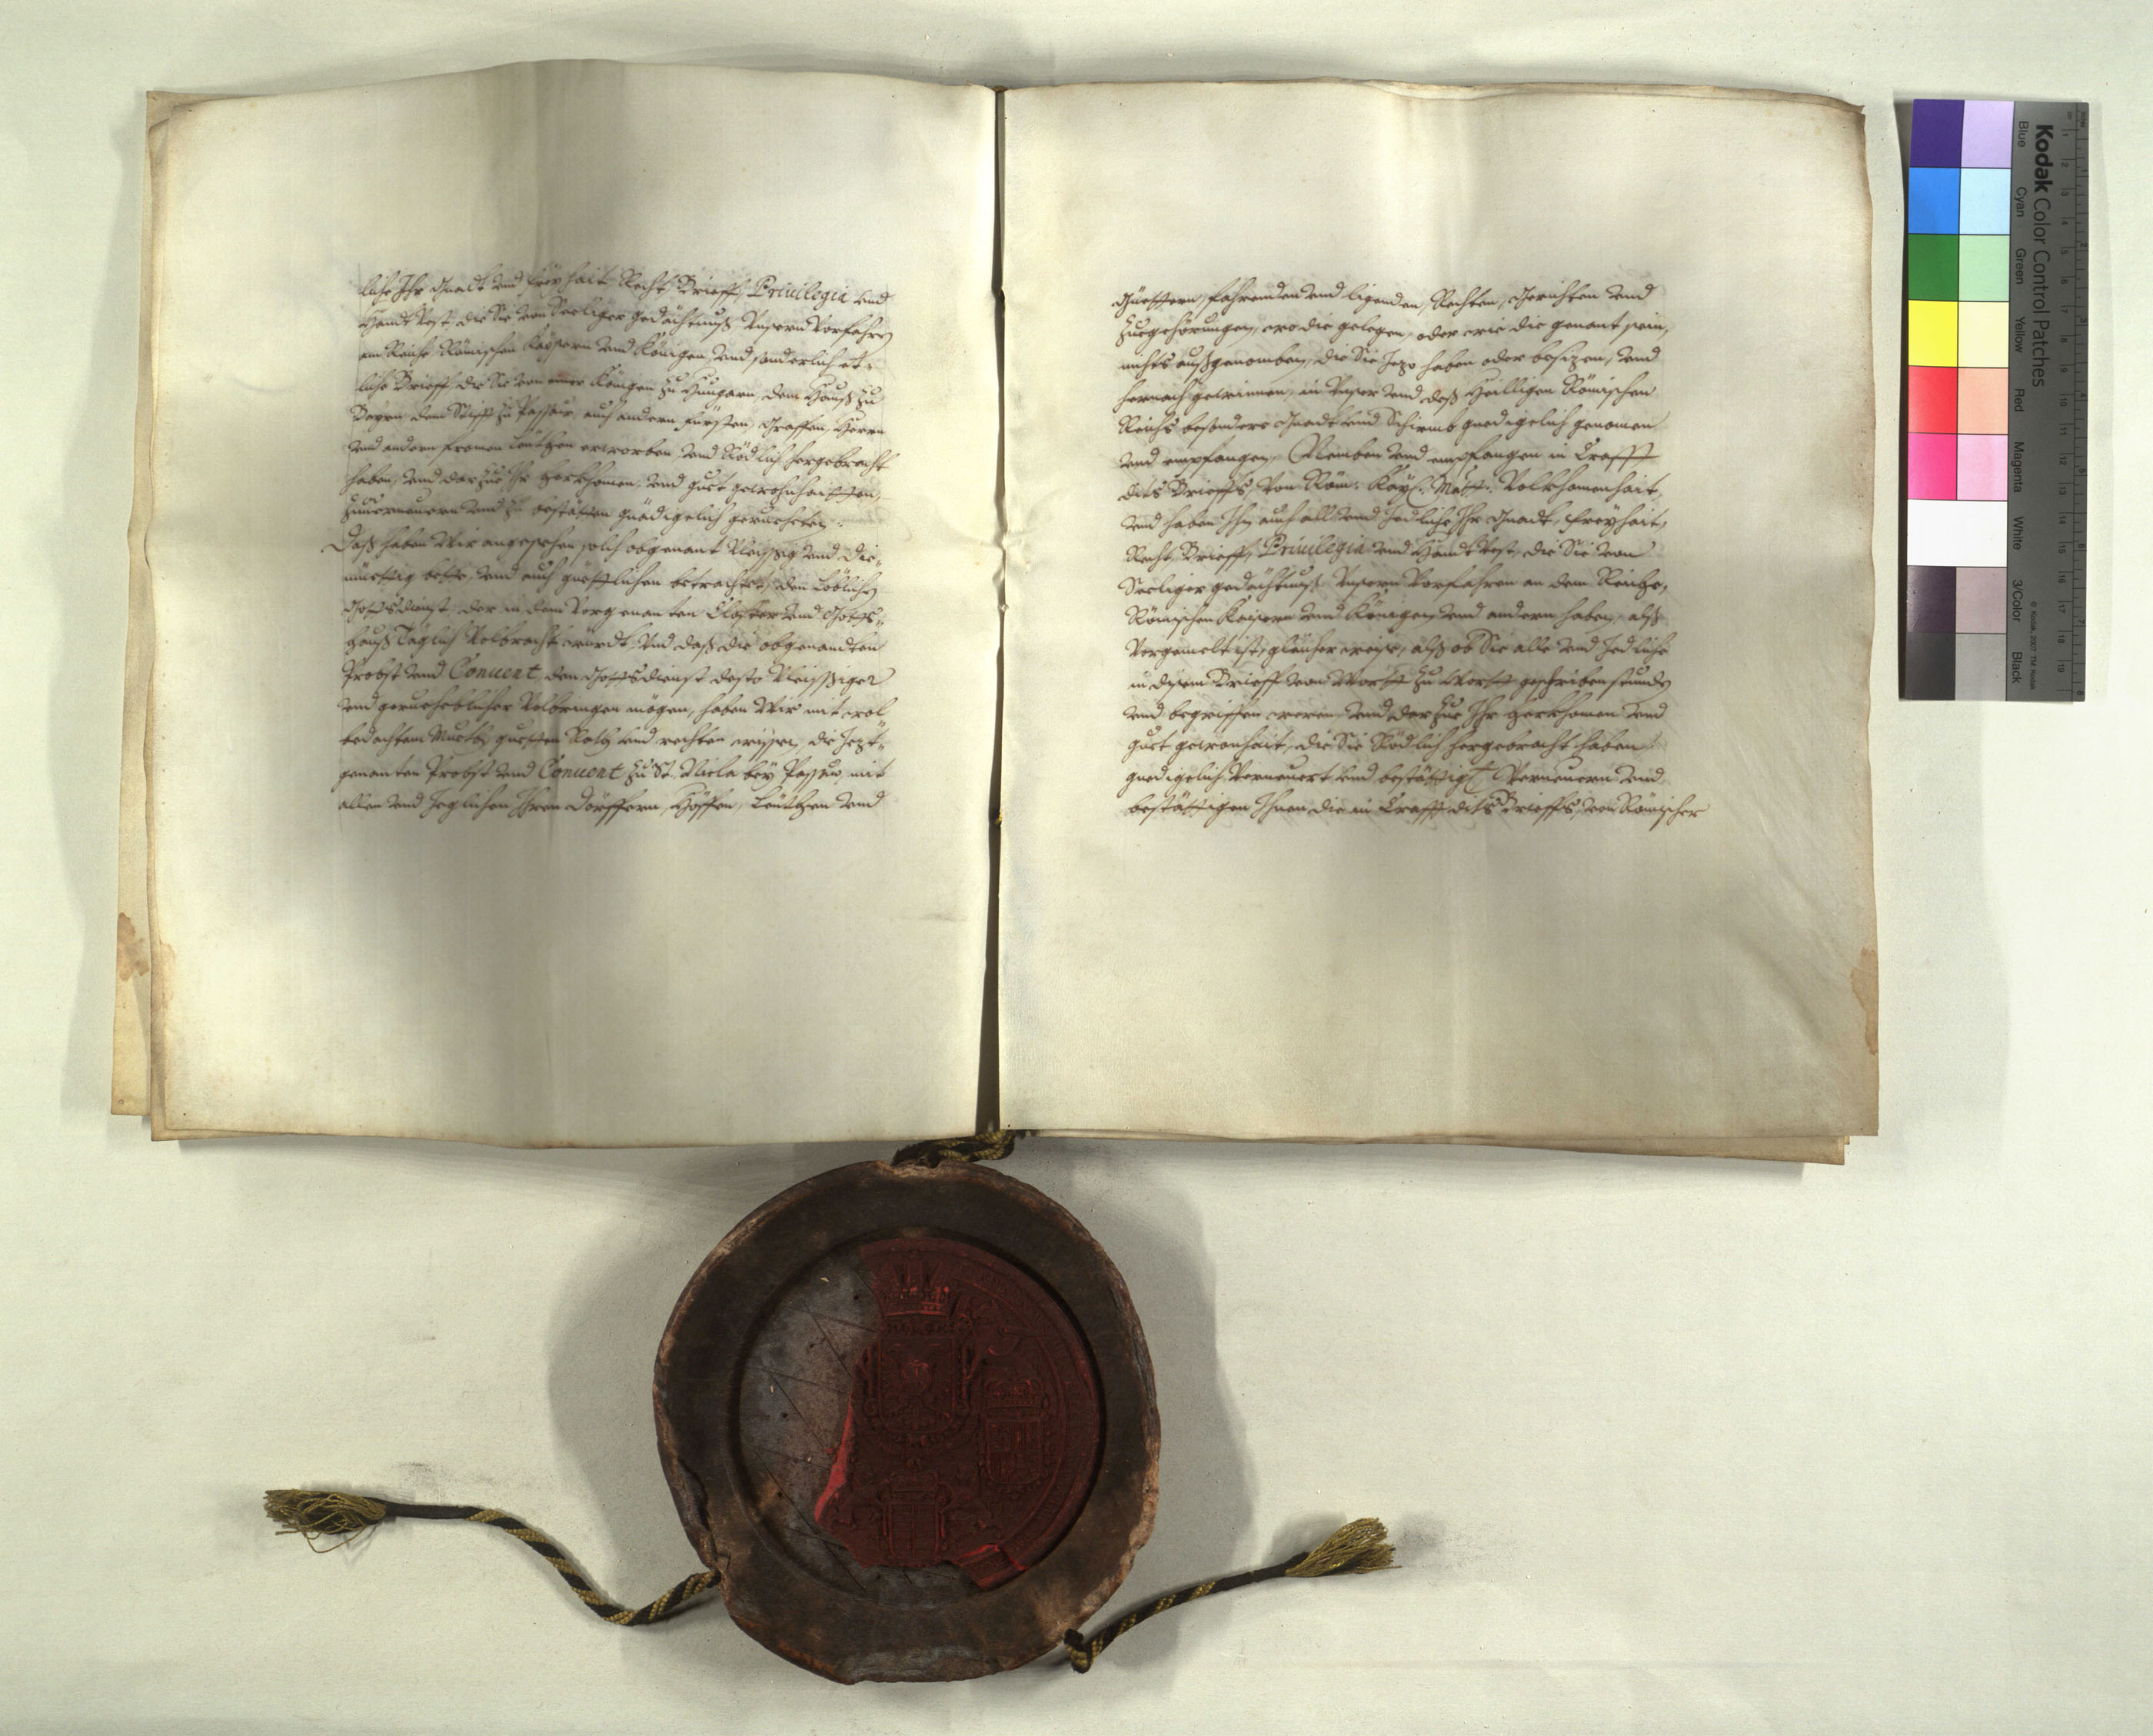 liche Ihr Gnadt vnd freyhait, Recht, Brieff, Priuilegia vnd
Handtvest, die Sie von Seeliger gedächtnuß Vnsern Vorfahrn
am Reiche Römischen Kaysern vnd Königen, vnd sonderlich et-
liche Brieff, die Sie von einer Königin zu Hungarn, dem Hauß zu
Bayrn, dem Stifft zu Passaw, auch andern Fürsten, Graffen, Herrn
vnd andern fromen Leüthen erworben, vnd Rödlich hergebracht
haben, vnd darzue Ihr herkhomen, vnd guet gewohnhaitten,
Zuuerneuern vnd zu bestätten gnädigelich geruehetn.
Daß haben Wir angesehen solch obgenant Vleissig vnd die-
müettig bette, vnd auch güettlichen betrachtet, den Löblichn
Gottsdienst, der in dem Vorgenanten Closter vnd Gotts-
hauß Täglich Volbracht würdt, Vnd daß die obgenandten
Probst vnd Conuent, den Gottsdienst desto Vleissiger
vnd geruehiblicher Volbringen mögen, haben Wir mit wol
bedachtem Mueth, guetten Rath vnd rechten wissen, die Jezt-
genanten Probst vnd Conuent zu St. Nicla bey Passaw, mit
allen vnd Jeglichen Ihren Dörffern, Höffen, Leüthen vnd
Güettern, fahrenden vnd ligenden, Rechten, Gerichten vnd
Zuegehörungen, wo die gelegen, oder wie die genant sein,
nichts außgenomben, die Sie Jezo haben oder besizen, vnd
hernach gewinnen, in Vnser vnd deß Heilligen Römischen
Reichs besondere Gnadt vnd Schirmb gnedigelich genomen
vnd empfangen, Nemben vnd empfangen in Crafft
dits Brieffs, Von Röm: Kay: Matt: Volkhomenhait,
vnd haben Ihn auch all vnd Jedliche Ihr Gnadt, freyhait,
Recht, Brieff, Priuilegia vnd Handtvest, die Sie von
Seeliger gedächtnuß Vnsern Vorfahren an dem Reiche,
Römischen Kaisern vnd Königen, vnd andern haben, alß
Vorgemelt ist, gleicher weiße, alß ob Sie alle vnd Jedliche
in disem Brieff von Wortt zu Wortt geschriben stundn
vnd begriffen weren, vnd darzue Ihr herkhomen vnd
guet gewonhait, die Sie Rödlich hergebracht haben
gnedigelich Verneuert vnd bestättigt, Verneuern vnd
bestättigen Ihnen die in Crafft dits Brieffs, von Römischer
Kodak Color Control Patches
Blue Cyan Green Yellow Red Magenta White 3/Color Black
© Kodak, 2007 TM: Kodak